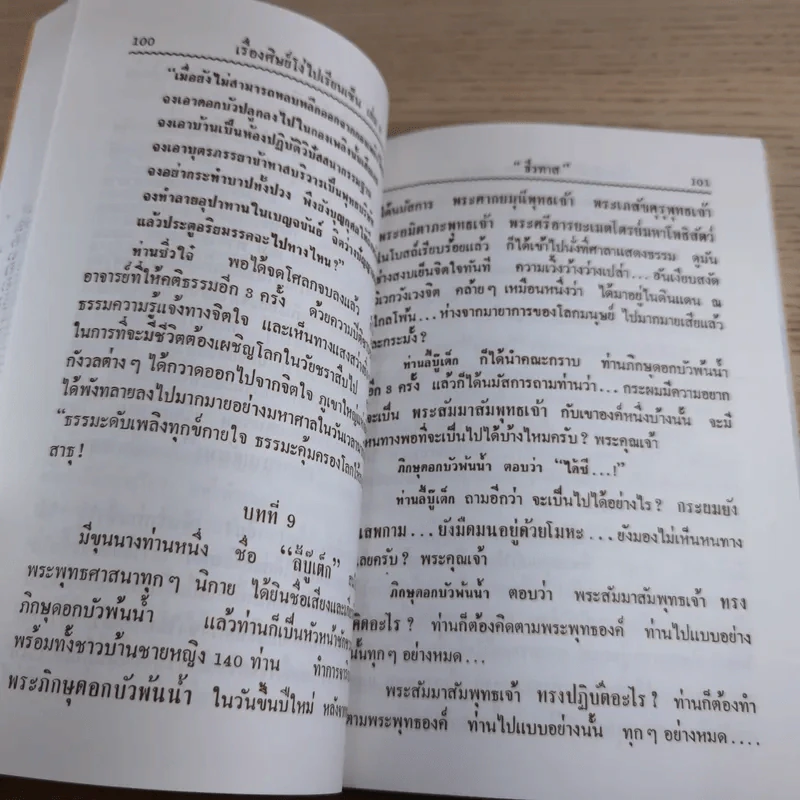 100
เรื่องศิษย์โง่ไปเรียนเซ็น
"เมื่อยังไม่สามารถหลบหลีกออกจาก
จงเอาดอกบัวปลูกลงไปในกองเพลิง
จงเอาบ้านเป็นห้องปฏิบัติวิปัสสนากรรมฐาน
จงเอาบุตรภรรยาข้าทาสบริวารเป็นพุทธบริษัท
จงอย่ากระทำบาปทั้งปวง พึงยังบุญกุศลให้
จงทำลายอุปาทานในเบญจขันธ์
แล้วประตูอริยมรรคจะไปทางไหน?"
ท่านชิวใจ๋ พอได้จดโศลกจบลงแล้ว
อาจารย์ที่ให้คติธรรมอีก 3 ครั้ง ด้วยความ
ธรรมความรู้แจ้งทางจิตใจ และเห็นทางแสงสว่าง
ในการที่จะมีชีวิตต้องเผชิญโลกในวัยชราสืบไป
กังวลต่างๆ ได้กวาดออกไปจากจิตใจ ภูเขาใหญ่
ได้พังทลายลงไปมากมายอย่างมหาศาลในวัน
"ธรรมะดับเพลิงทุกข์กายใจ ธรรมะคุ้มครองโลกให้
สาธุ!
บทที่ 9
มีขุนนางท่านหนึ่ง ชื่อ "ลี้ปู๊เต็ก"
พระพุทธศาสนาทุกๆ นิกาย ได้ยินชื่อเสียงและ
ภิกษุดอกบัวพ้นน้ำ แล้วท่านก็เป็นหัวหน้า
พร้อมทั้งชาวบ้านชายหญิง 140 ท่าน ทำการ
พระภิกษุดอกบัวพ้นน้ำ ในวันขึ้นปีใหม่
"ธีรทาส"
101
ได้นมัสการ พระศากยมุนีพุทธเจ้า พระเภสัชคุรุพุทธเจ้า
พระอมิตาภะพุทธเจ้า พระศรีอารยะเมตไตรย์มหาโพธิสัตว์
ในโบสถ์เรียบร้อยแล้ว ก็ได้เข้าไปนั่งที่ศาลาแสดงธรรม ดูมัน
ช่างสงบเย็นจิตใจทันที ความเวิ้งว้างว่างเปล่า...อันเงียบสงัด
วิเวกวังเวงจิต คล้ายๆ เหมือนหนึ่งว่า ได้มาอยู่ในดินแดน ณ
ที่ไกลโพ้น...ห่างจากมายาการของโลกมนุษย์ ไปมากมายเสียแล้ว
ละกระมั้ง?
ท่านลี้ปู๊เต็ก ก็ได้นำคณะกราบ ท่านภิกษุดอกบัวพ้นน้ำ
อีก 3 ครั้ง แล้วก็ได้นมัสการถามท่านว่า...กระผมมีความอยาก
จะเป็น พระสัมมาสัมพุทธเจ้า กับเขาองค์หนึ่งบ้างนั้น จะมี
หนทางพอที่จะเป็นไปได้บ้างไหมครับ? พระคุณเจ้า
ภิกษุดอกบัวพ้นน้ำ ตอบว่า "ได้ซี...!"
ท่านลี้ปู๊เต็ก ถามอีกว่า จะเป็นไปได้อย่างไร? กระผมยัง
เสพกาม...ยังมืดมนอยู่ด้วยโมหะ...ยังมองไม่เห็นหนทาง
เลยครับ? พระคุณเจ้า
ภิกษุดอกบัวพ้นน้ำ ตอบว่า พระสัมมาสัมพุทธเจ้า ทรง
คิดอะไร? ท่านก็ต้องคิดตามพระพุทธองค์ ท่านไปแบบอย่าง
นั้นทุกๆ อย่างหมด...
พระสัมมาสัมพุทธเจ้า ทรงปฏิบัติอะไร? ท่านก็ต้องทำ
ตามพระพุทธองค์ ท่านไปแบบอย่างนั้น ทุกๆ อย่างหมด....